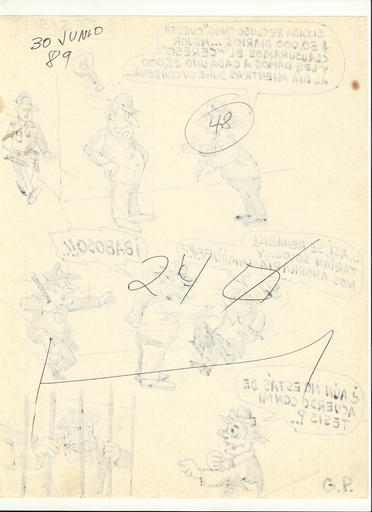 30 JUNIO
89
SI CADA RECLUSO "NOS" CUESTA
$50,000 DIARIOS... MEJOR
CLAUSURAMOS EL "CERESO"
Y LES DAMOS A CADA UNO 25,000
AL DIA MIENTRAS DURE SU CONDENA..
48
...ASÍ SE REHABILI
TARÍAN SOLOS Y
NOS AHORRA
¡BABOSO!!..
240
¿AÚN NO ESTÁS DE
ACUERDO CON MI
TESIS..?